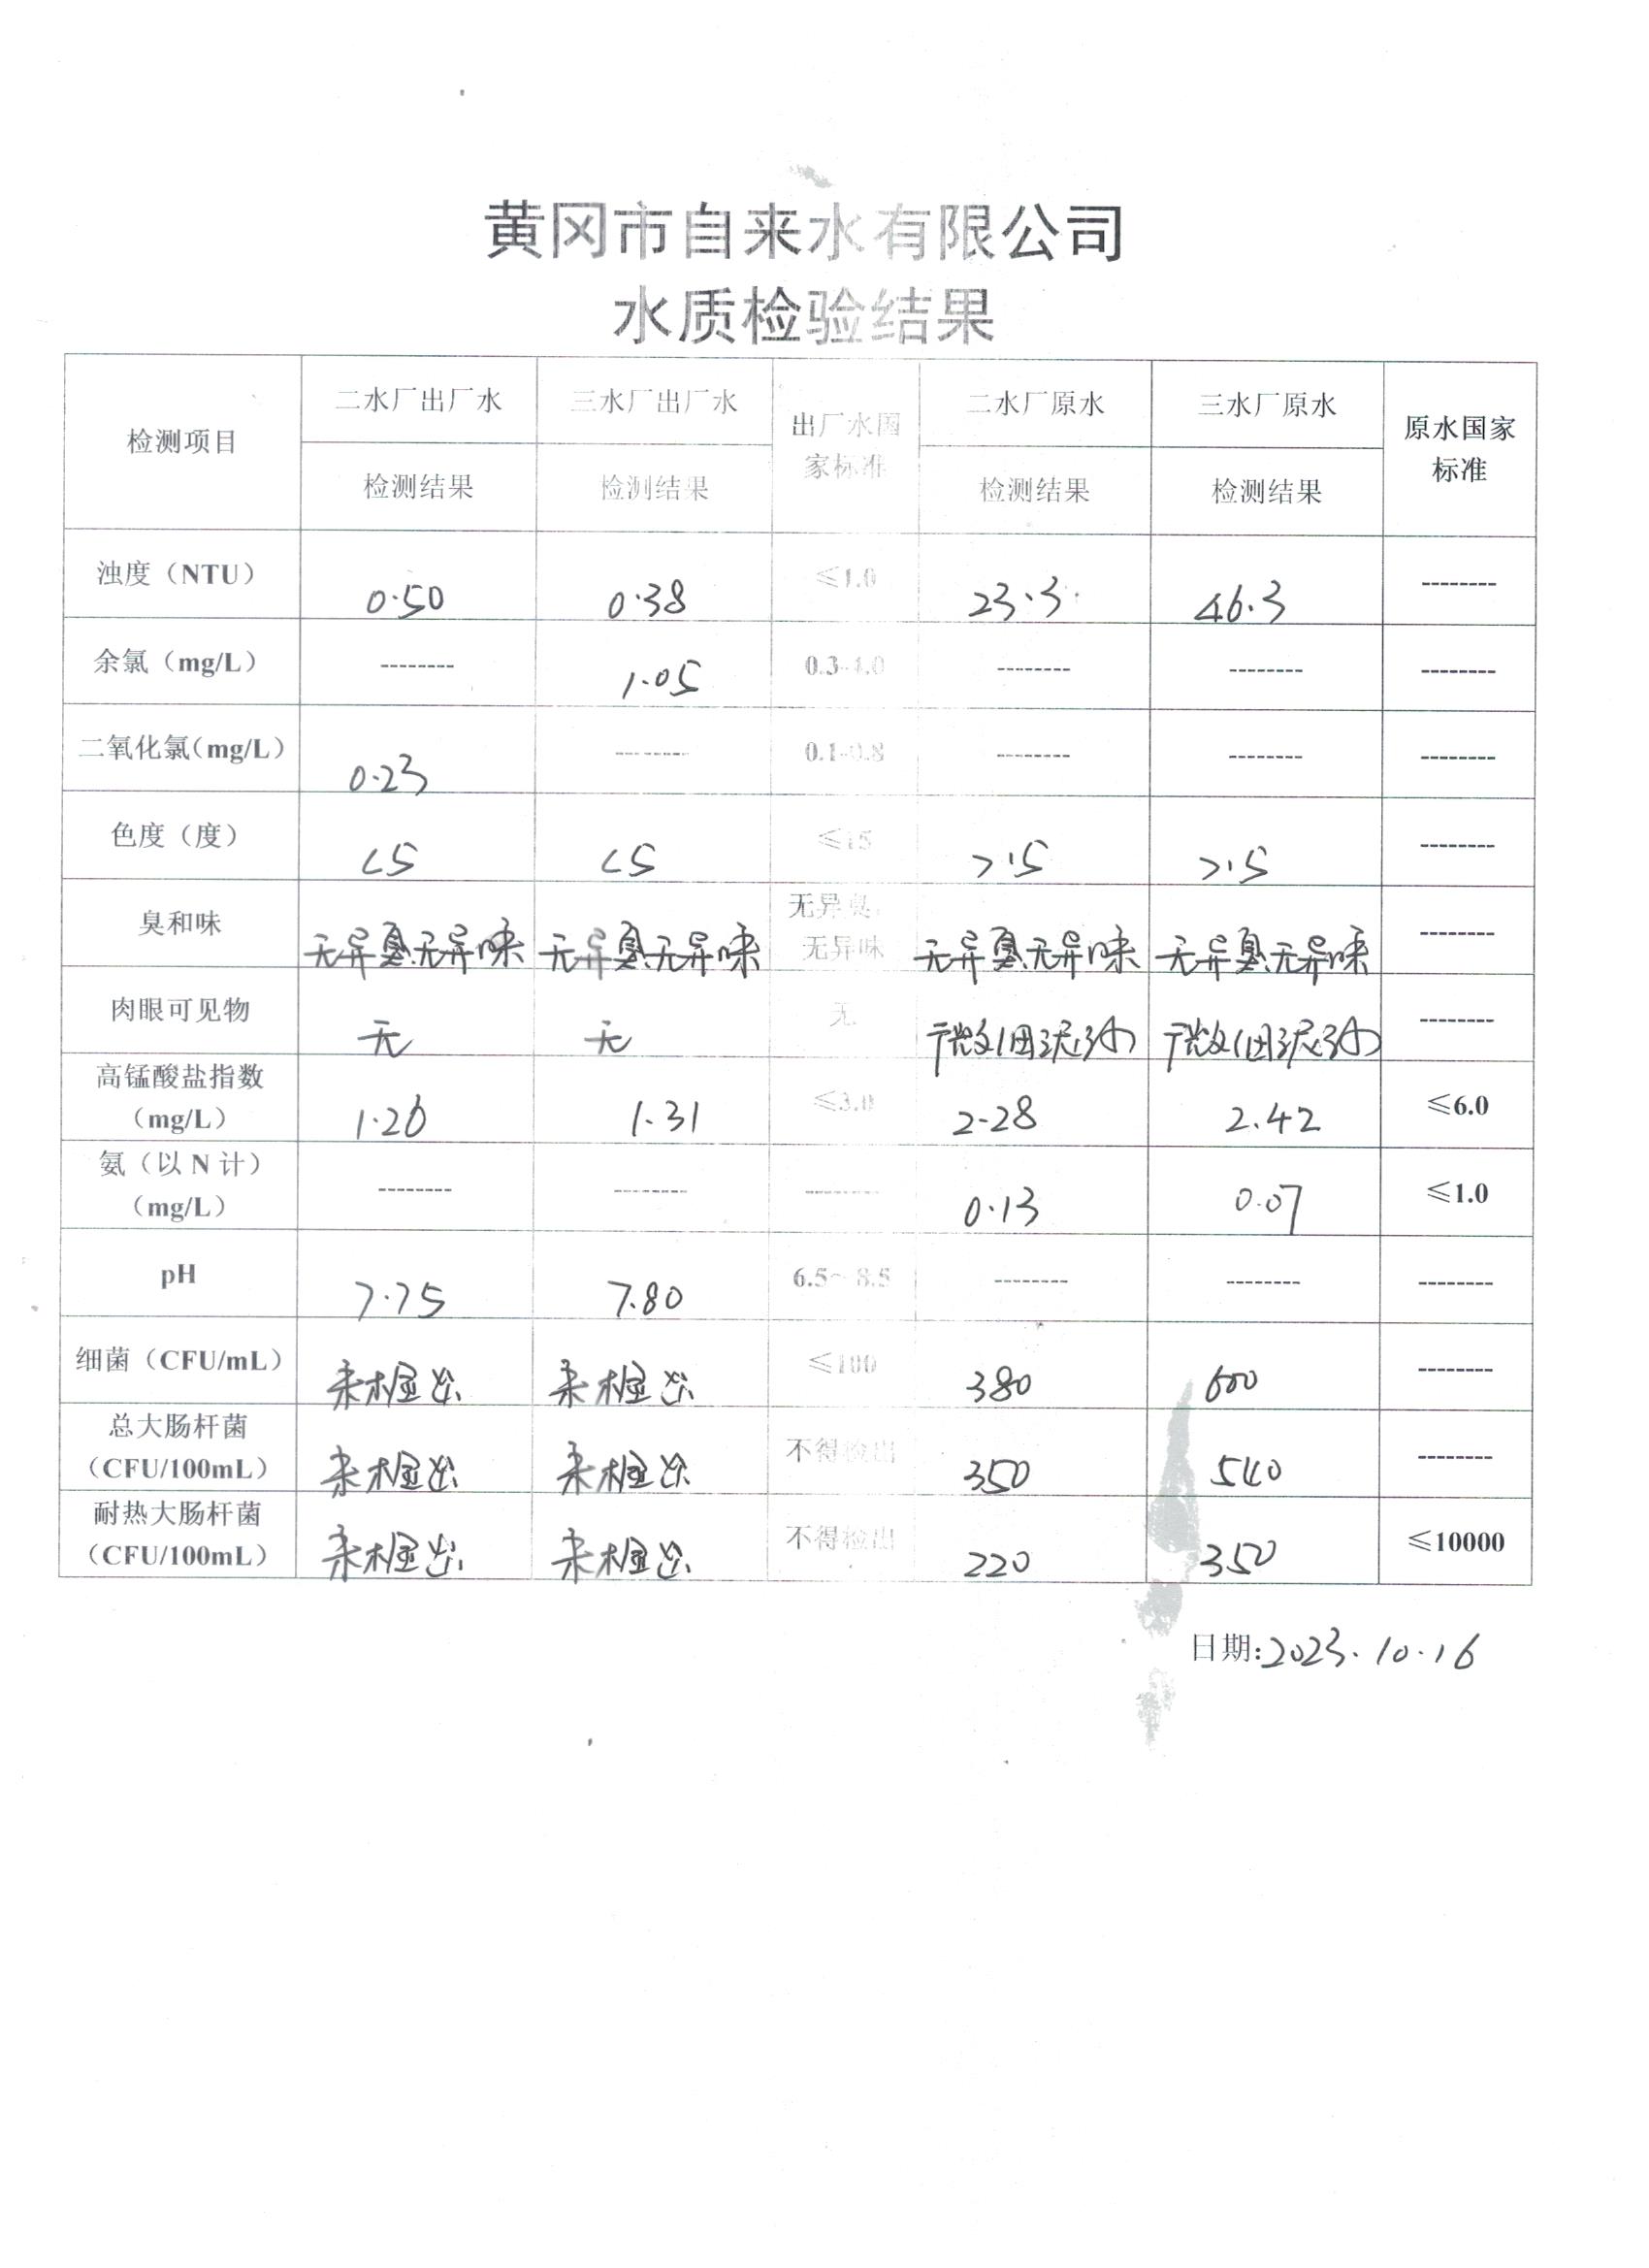 黄冈市自来水有限公司
水质检验结果
检测项目 二水厂出厂水 三水厂出厂水 出厂水国家标准 二水厂原水 三水厂原水 原水国家标准
检测结果 检测结果 检测结果 检测结果
浊度（NTU） 0.50 0.38 ≤1.0 23.3 46.3 --------
余氯（mg/L） -------- 1.05 0.3-4.0 -------- -------- --------
二氧化氯(mg/L) 0.23 -------- 0.1-0.8 -------- -------- --------
色度（度） <5 <5 ≤15 >15 >15 --------
臭和味 无异臭无异味 无异臭无异味 无异臭、无异味 无异臭无异味 无异臭无异味 --------
肉眼可见物 无 无 无 微细泥沙 微细泥沙 --------
高锰酸盐指数（mg/L） 1.26 1.31 ≤3.0 2.28 2.42 ≤6.0
氨（以 N 计）（mg/L） -------- -------- -------- 0.13 0.07 ≤1.0
pH 7.75 7.80 6.5~8.5 -------- -------- --------
细菌（CFU/mL） 未检出 未检出 ≤100 380 600 --------
总大肠杆菌（CFU/100mL） 未检出 未检出 不得检出 350 540 --------
耐热大肠杆菌（CFU/100mL） 未检出 未检出 不得检出 220 350 ≤10000
日期:2023.10.16